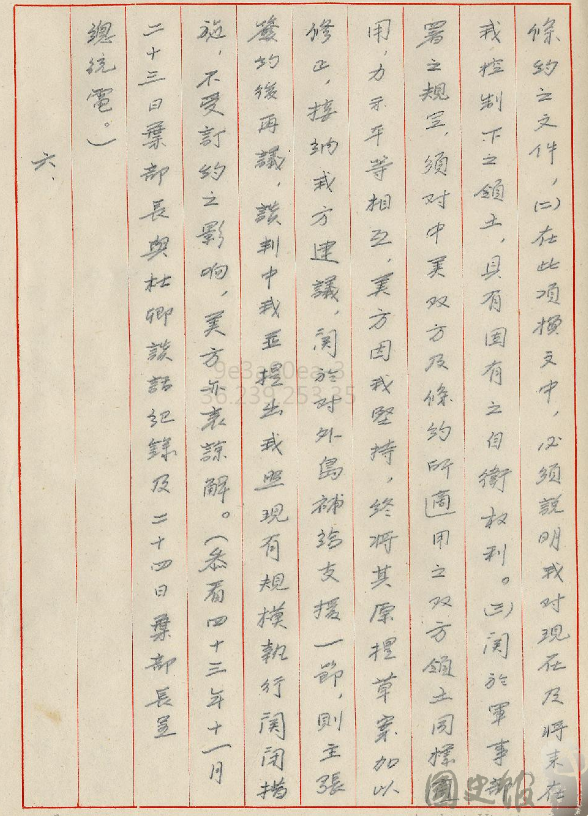 條約之文件，(二)在此項換文中，必須説明我对現在及將來在
我控制下之領土，具有固有之自衛权利。(三)関於軍事部
署之規定，須对中美双方及條約所適用之双方領土同樣適
用，力示平等相互，美方因我堅持，終將其原提草案加以
修正，接納我方建議，関於对外島補給支援一節，則主張
簽約後再議，談判中我並提出我照現有規模執行関闭措
施，不受訂約之影响，美方亦表諒解。(參看四十三年十一月
二十三日葉部長與杜卿談話紀錄及二十四日葉部長呈
總統電。)
六、
國史館
36.239.253.35